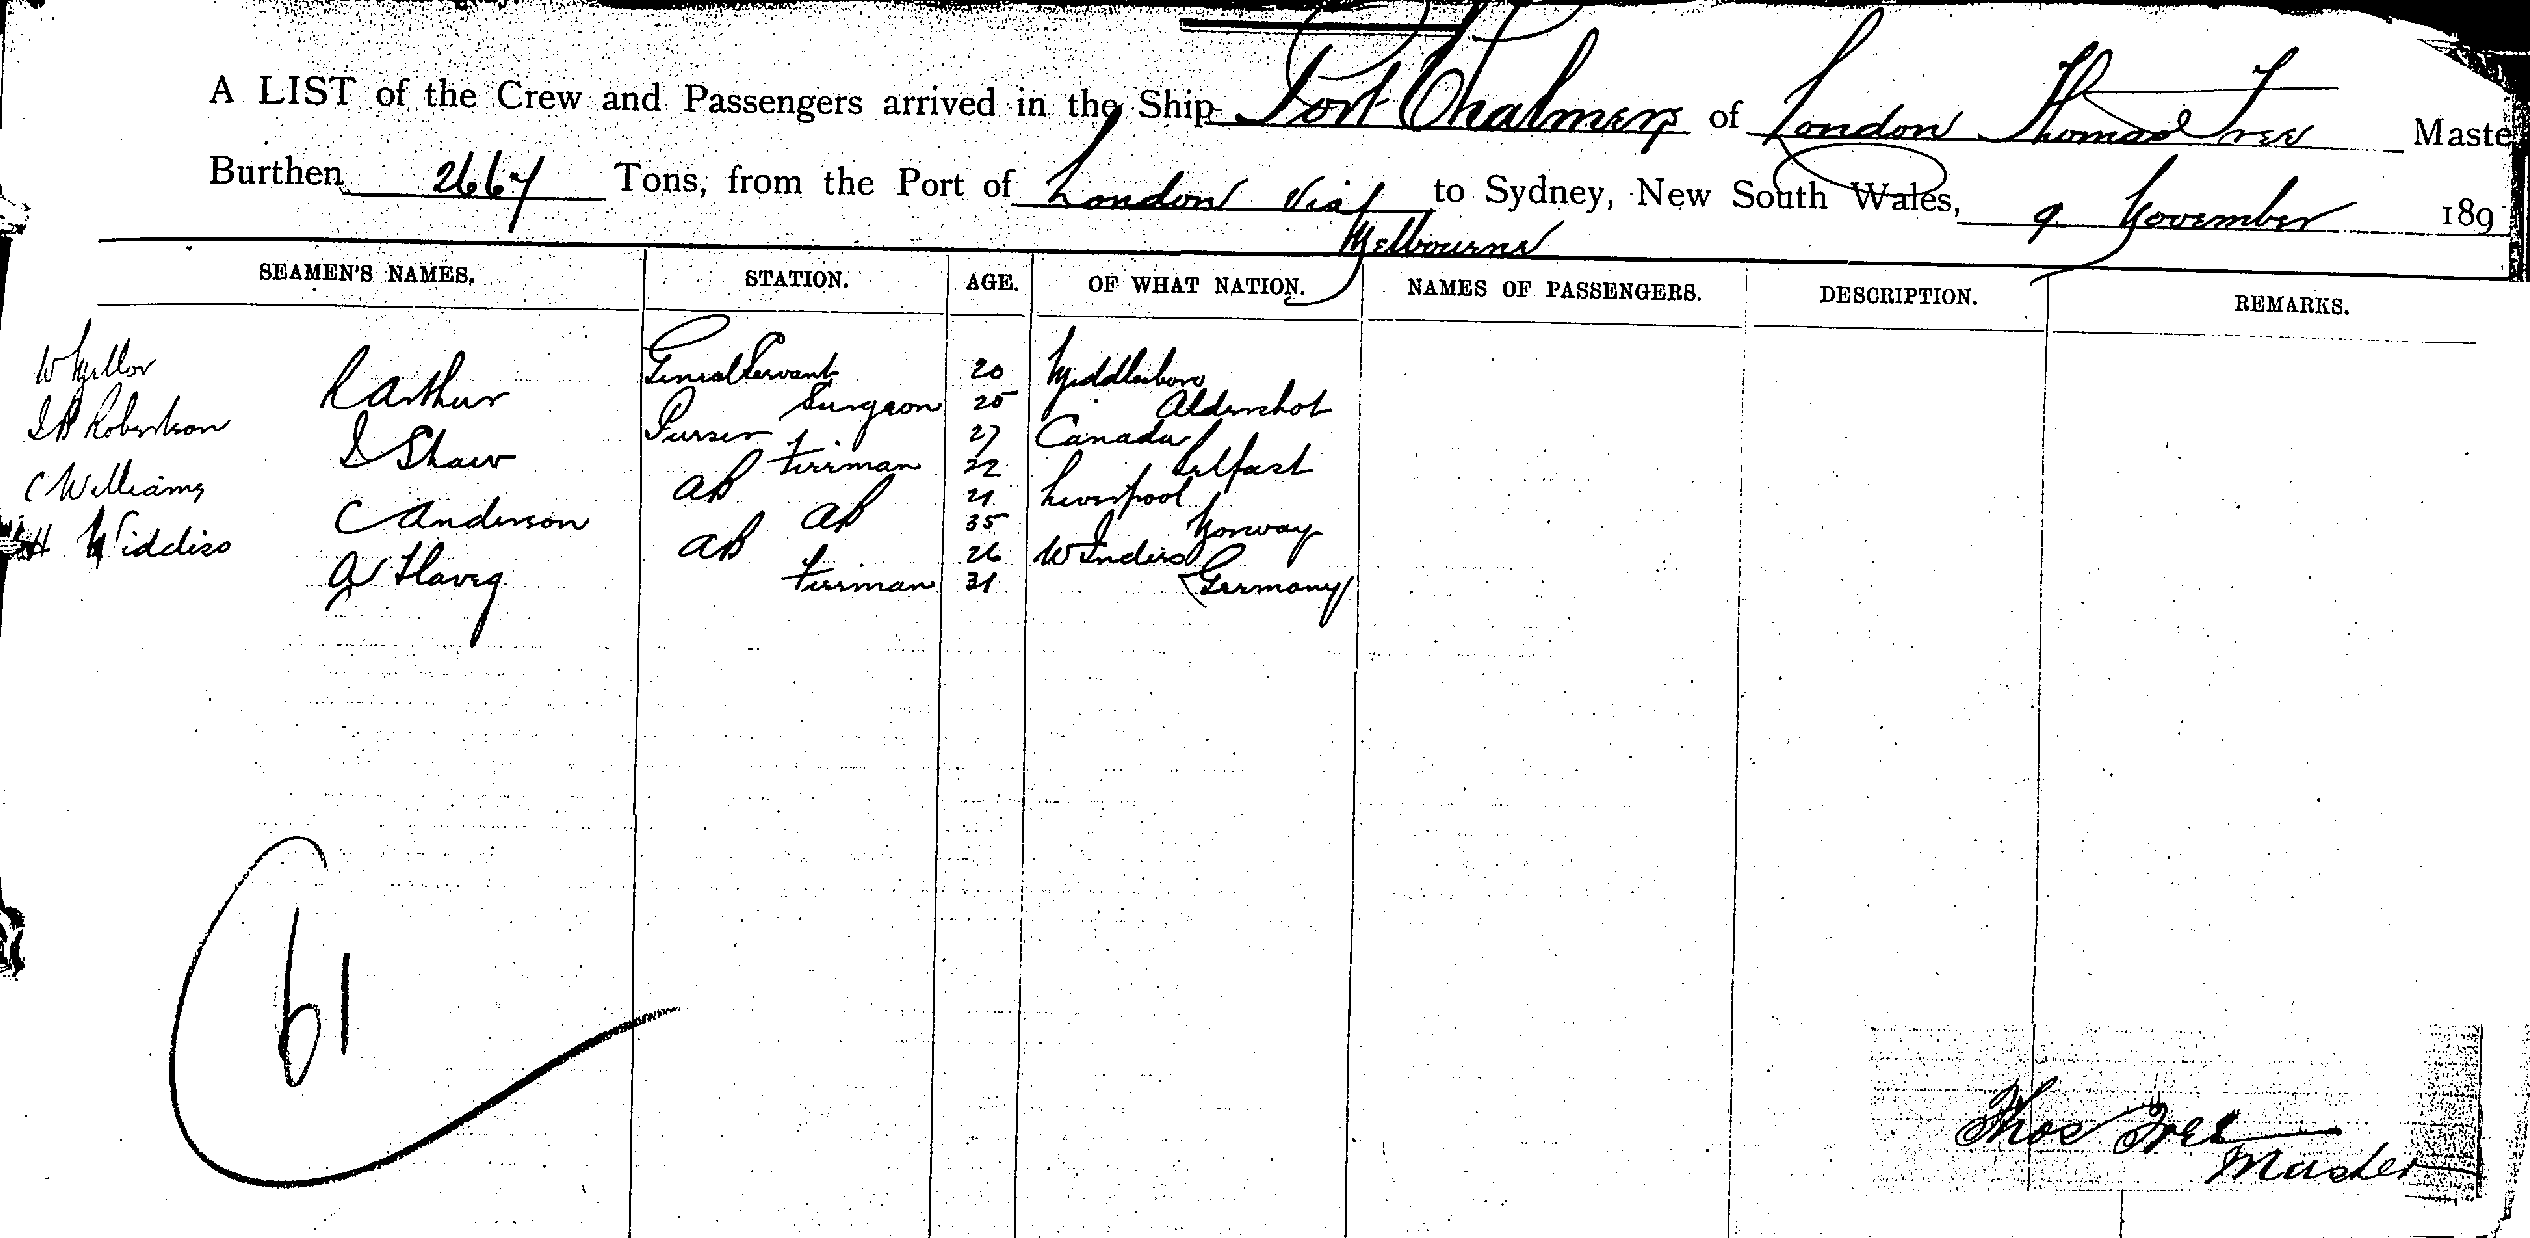 A LIST of the Crew and Passengers arrived in the Ship Port Chalmers of London Thomas Tree Maste
Burthen 2667 Tons, from the Port of London via Melbourne to Sydney, New South Wales, 9 November 189
SEAMEN'S NAMES. STATION. AGE. OF WHAT NATION. NAMES OF PASSENGERS. DESCRIPTION. REMARKS.
W Mellor Genral Servant 20 Middlesboro
R Arthur Surgeon 25 Aldershot
Robertson Purser 27 Canada
D Shaw Fireman 22 Belfast
C Williams AB 21 Liverpool
C Anderson AB 35 Norway
H AB 26 W Indies
Fireman 31 Germany
61
Thos Tree
Master